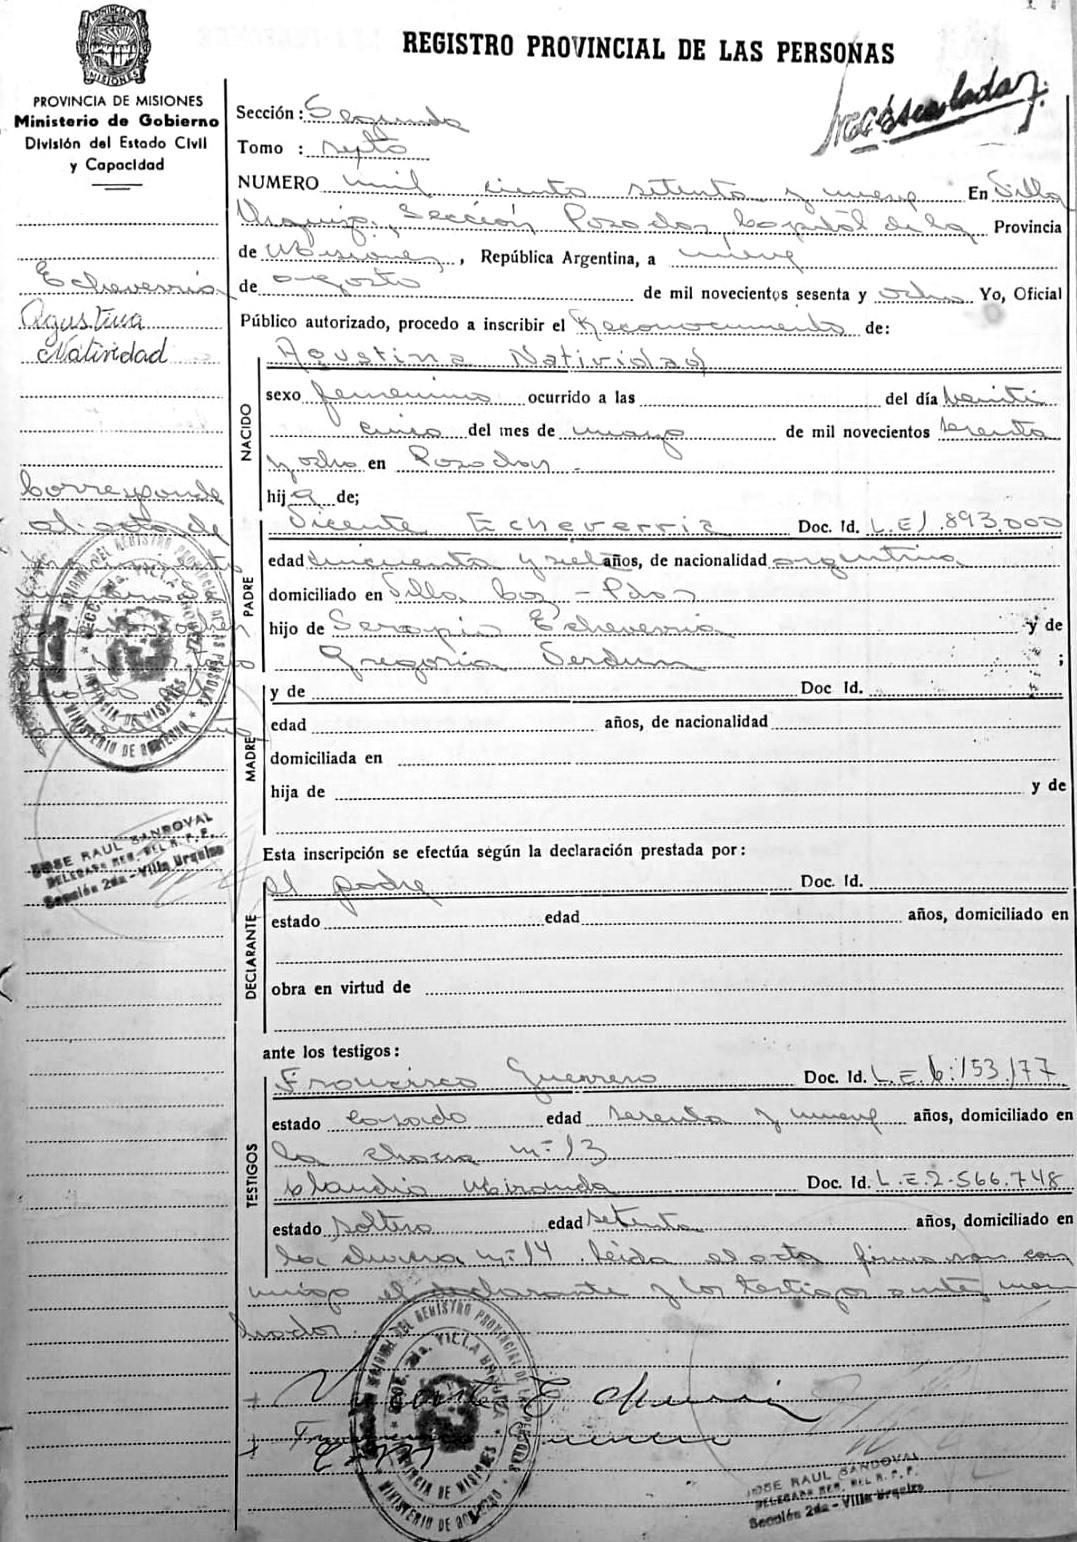 PROVINCIA DE
MISIONES
REGISTRO PROVINCIAL DE LAS PERSONAS
PROVINCIA DE MISIONES
Ministerio de Gobierno
División del Estado Civil
y Capacidad
Sección: Segunda
Tomo : sexto
NUMERO mil ciento setenta y nueve En Villa
Urquiza, Sección Posadas Capital de la Provincia
de Misiones, República Argentina, a nueve
de agosto de mil novecientos sesenta y ocho Yo, Oficial
Público autorizado, procedo a inscribir el Reconocimiento de:
Echeverria
Agustina
Natividad
NACIDO
Agustina Natividad
sexo femenino ocurrido a las del día veinti
cinco del mes de mayo de mil novecientos sesenta
y ocho en Posadas.
hija de;
Corresponde
al acta de
PADRE
Vicente Echeverria Doc. Id. L.E 1.893.000
edad cincuenta y siete años, de nacionalidad argentina
domiciliado en Villa
hijo de Serapio Echeverria y de
Gregoria Verdum ;
MADRE
y de Doc Id.
edad años, de nacionalidad
domiciliada en
hija de y de
REGISTRO PROVINCIAL DE LAS PERSONAS
SECC. 2da. VILLA URQUIZA
PROVINCIA DE MISIONES
MINISTERIO DE GOBIERNO
JOSE RAUL SANDOVAL
DELEGADO REG. DEL R. P. P.
Sección 2da - Villa Urquiza
Esta inscripción se efectúa según la declaración prestada por:
DECLARANTE
el padre Doc. Id.
estado edad años, domiciliado en
obra en virtud de
ante los testigos:
TESTIGOS
Francisco Guerrero Doc. Id. L.E. 6.153.177
estado casado edad sesenta y nueve años, domiciliado en
la chacra nº 13
Claudio Miranda Doc. Id. L.E. 2.566.748
estado soltero edad setenta años, domiciliado en
la chacra nº 14 leida el acta firman con
migo el declarante y los testigos antes men
ciados.
REGISTRO PROVINCIAL DE LAS PERSONAS
SECC. 2da. VILLA URQUIZA
PROVINCIA DE MISIONES
MINISTERIO DE GOBIERNO
JOSE RAUL SANDOVAL
DELEGADO REG. DEL R. P. P.
Sección 2da - Villa Urquiza